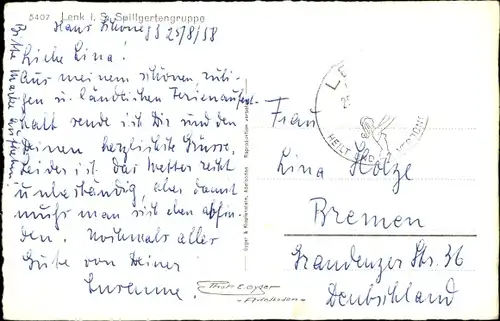 5407 Lenk i. S. Spillgertengruppe
25/8/58
Liebe Lina!
Aus meinem schönen ruhi-
gen u. ländlichen Ferienaufent-
halt sende ich Dir und den
Deinen herzlichste Grüsse.
Leider ist das Wetter recht
unbeständig, aber damit
muss man sich eben abfin-
den. Nochmals alles
Gute von Deiner
Susanne.
Bitte Marke
Gyger & Klopfenstein, Adelboden
Reproduktion verboten
Phot. E. Gyger
- Adelboden -
HEILT UND
Frau
Lina Hotze
Bremen
Graudenzer Str. 36
Deutschland